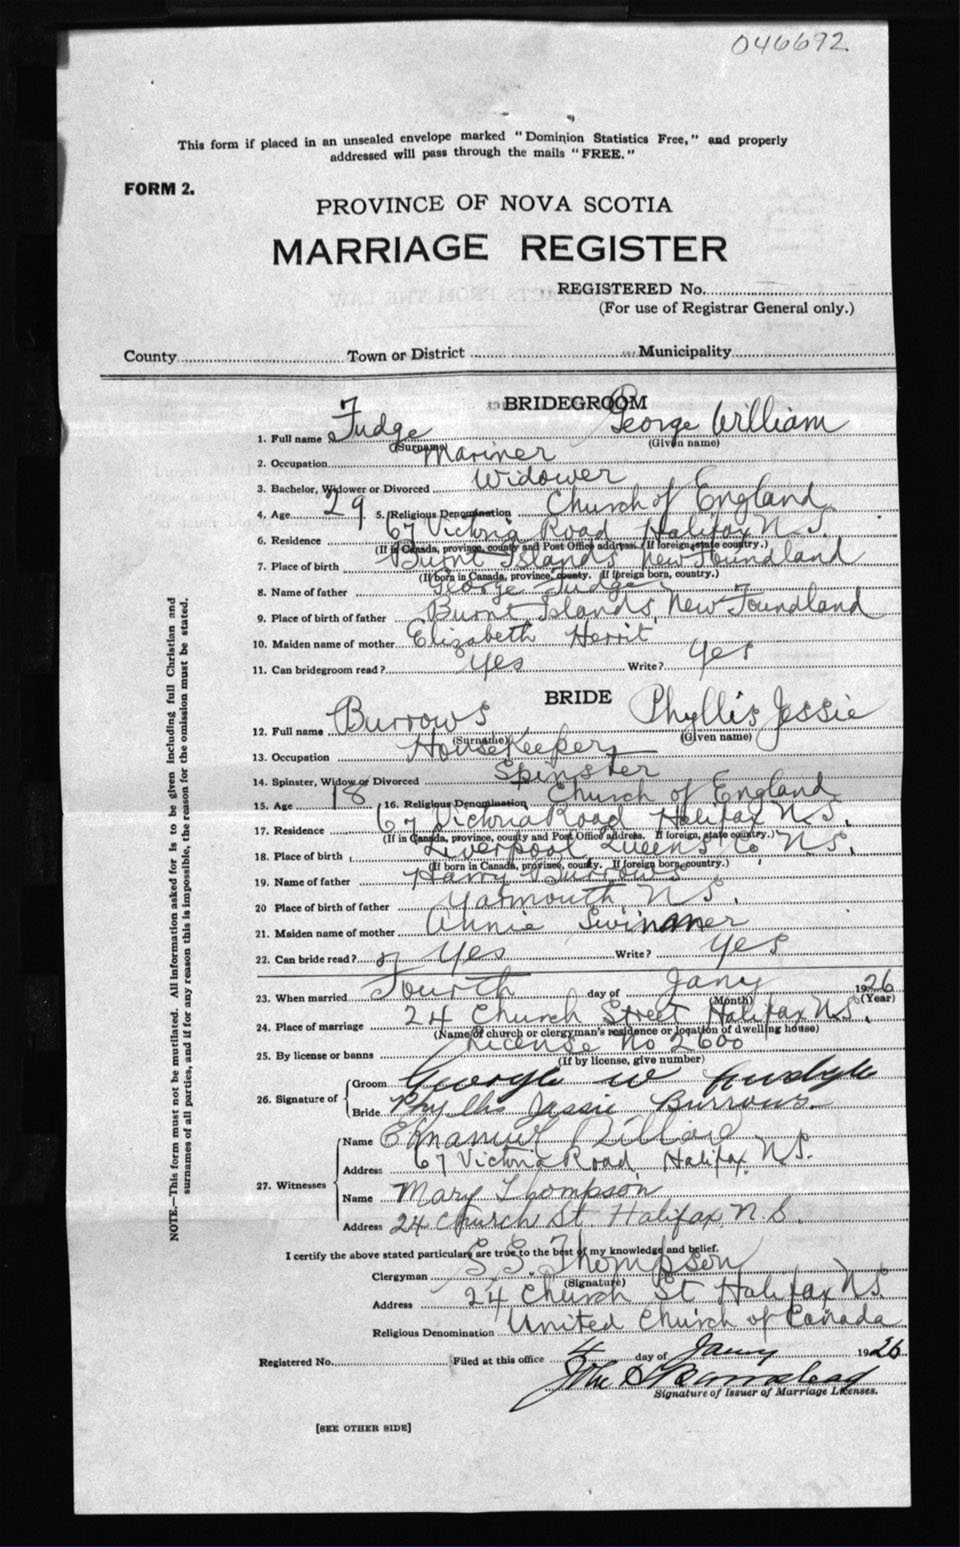 046692.
This form if placed in an unsealed envelope marked "Dominion Statistics Free," and properly
addressed will pass through the mails "FREE."
FORM 2.
PROVINCE OF NOVA SCOTIA
MARRIAGE REGISTER
REGISTERED No.
(For use of Registrar General only.)
County Town or District Municipality
BRIDEGROOM
1. Full name Fudge George William
(Surname) (Given name)
2. Occupation Mariner
3. Bachelor, Widower or Divorced Widower
4. Age 29 5. Religious Denomination Church of England
6. Residence 67 Victoria Road Halifax N.S.
(If in Canada, province, county and Post Office address. If foreign, state country.)
7. Place of birth Burnt Islands New Foundland
(If born in Canada, province, county. If foreign born, country.)
8. Name of father George Fudge
9. Place of birth of father Burnt Islands, New Foundland
10. Maiden name of mother Elizabeth Herrit
11. Can bridegroom read? Yes Write? Yes
BRIDE
12. Full name Burrows Phyllis Jessie
(Surname) (Given name)
13. Occupation HouseKeeper
14. Spinster, Widow or Divorced Spinster
15. Age 18 16. Religious Denomination Church of England
17. Residence 67 Victoria Road Halifax N.S.
(If in Canada, province, county and Post Office address. If foreign, state country.)
18. Place of birth Liverpool Queens Co N.S.
(If born in Canada, province, county. If foreign born, country.)
19. Name of father Harry Burrows
20 Place of birth of father Yarmouth, N.S.
21. Maiden name of mother Annie
22. Can bride read? Yes Write? Yes
23. When married Fourth day of Jany 1926
(Month) (Year)
24. Place of marriage 24 Church Street Halifax N.S.
(Name of church or clergyman's residence or location of dwelling house)
25. By license or banns License No 2600
(If by license, give number)
26. Signature of
Groom George W Fudge
Bride Phyllis Jessie Burrows.
27. Witnesses
Name Emanuel
Address 67 Victoria Road, Halifax, N.S.
Name Mary Thompson
Address 24 Church St. Halifax, N.S.
I certify the above stated particulars are true to the best of my knowledge and belief.
Clergyman S.S. Thompson
(Signature)
Address 24 Church St Halifax N.S.
Religious Denomination United Church of Canada
Registered No. Filed at this office 4 day of Jany 1926.
John
Signature of Issuer of Marriage Licenses.
[SEE OTHER SIDE]
NOTE.—This form must not be mutilated. All information asked for is to be given including full Christian and
surnames of all parties, and if for any reason this is impossible, the reason for the omission must be stated.